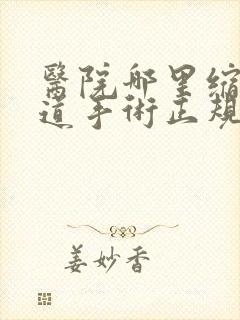 醫院哪里縮
道手術正規
姜妙香